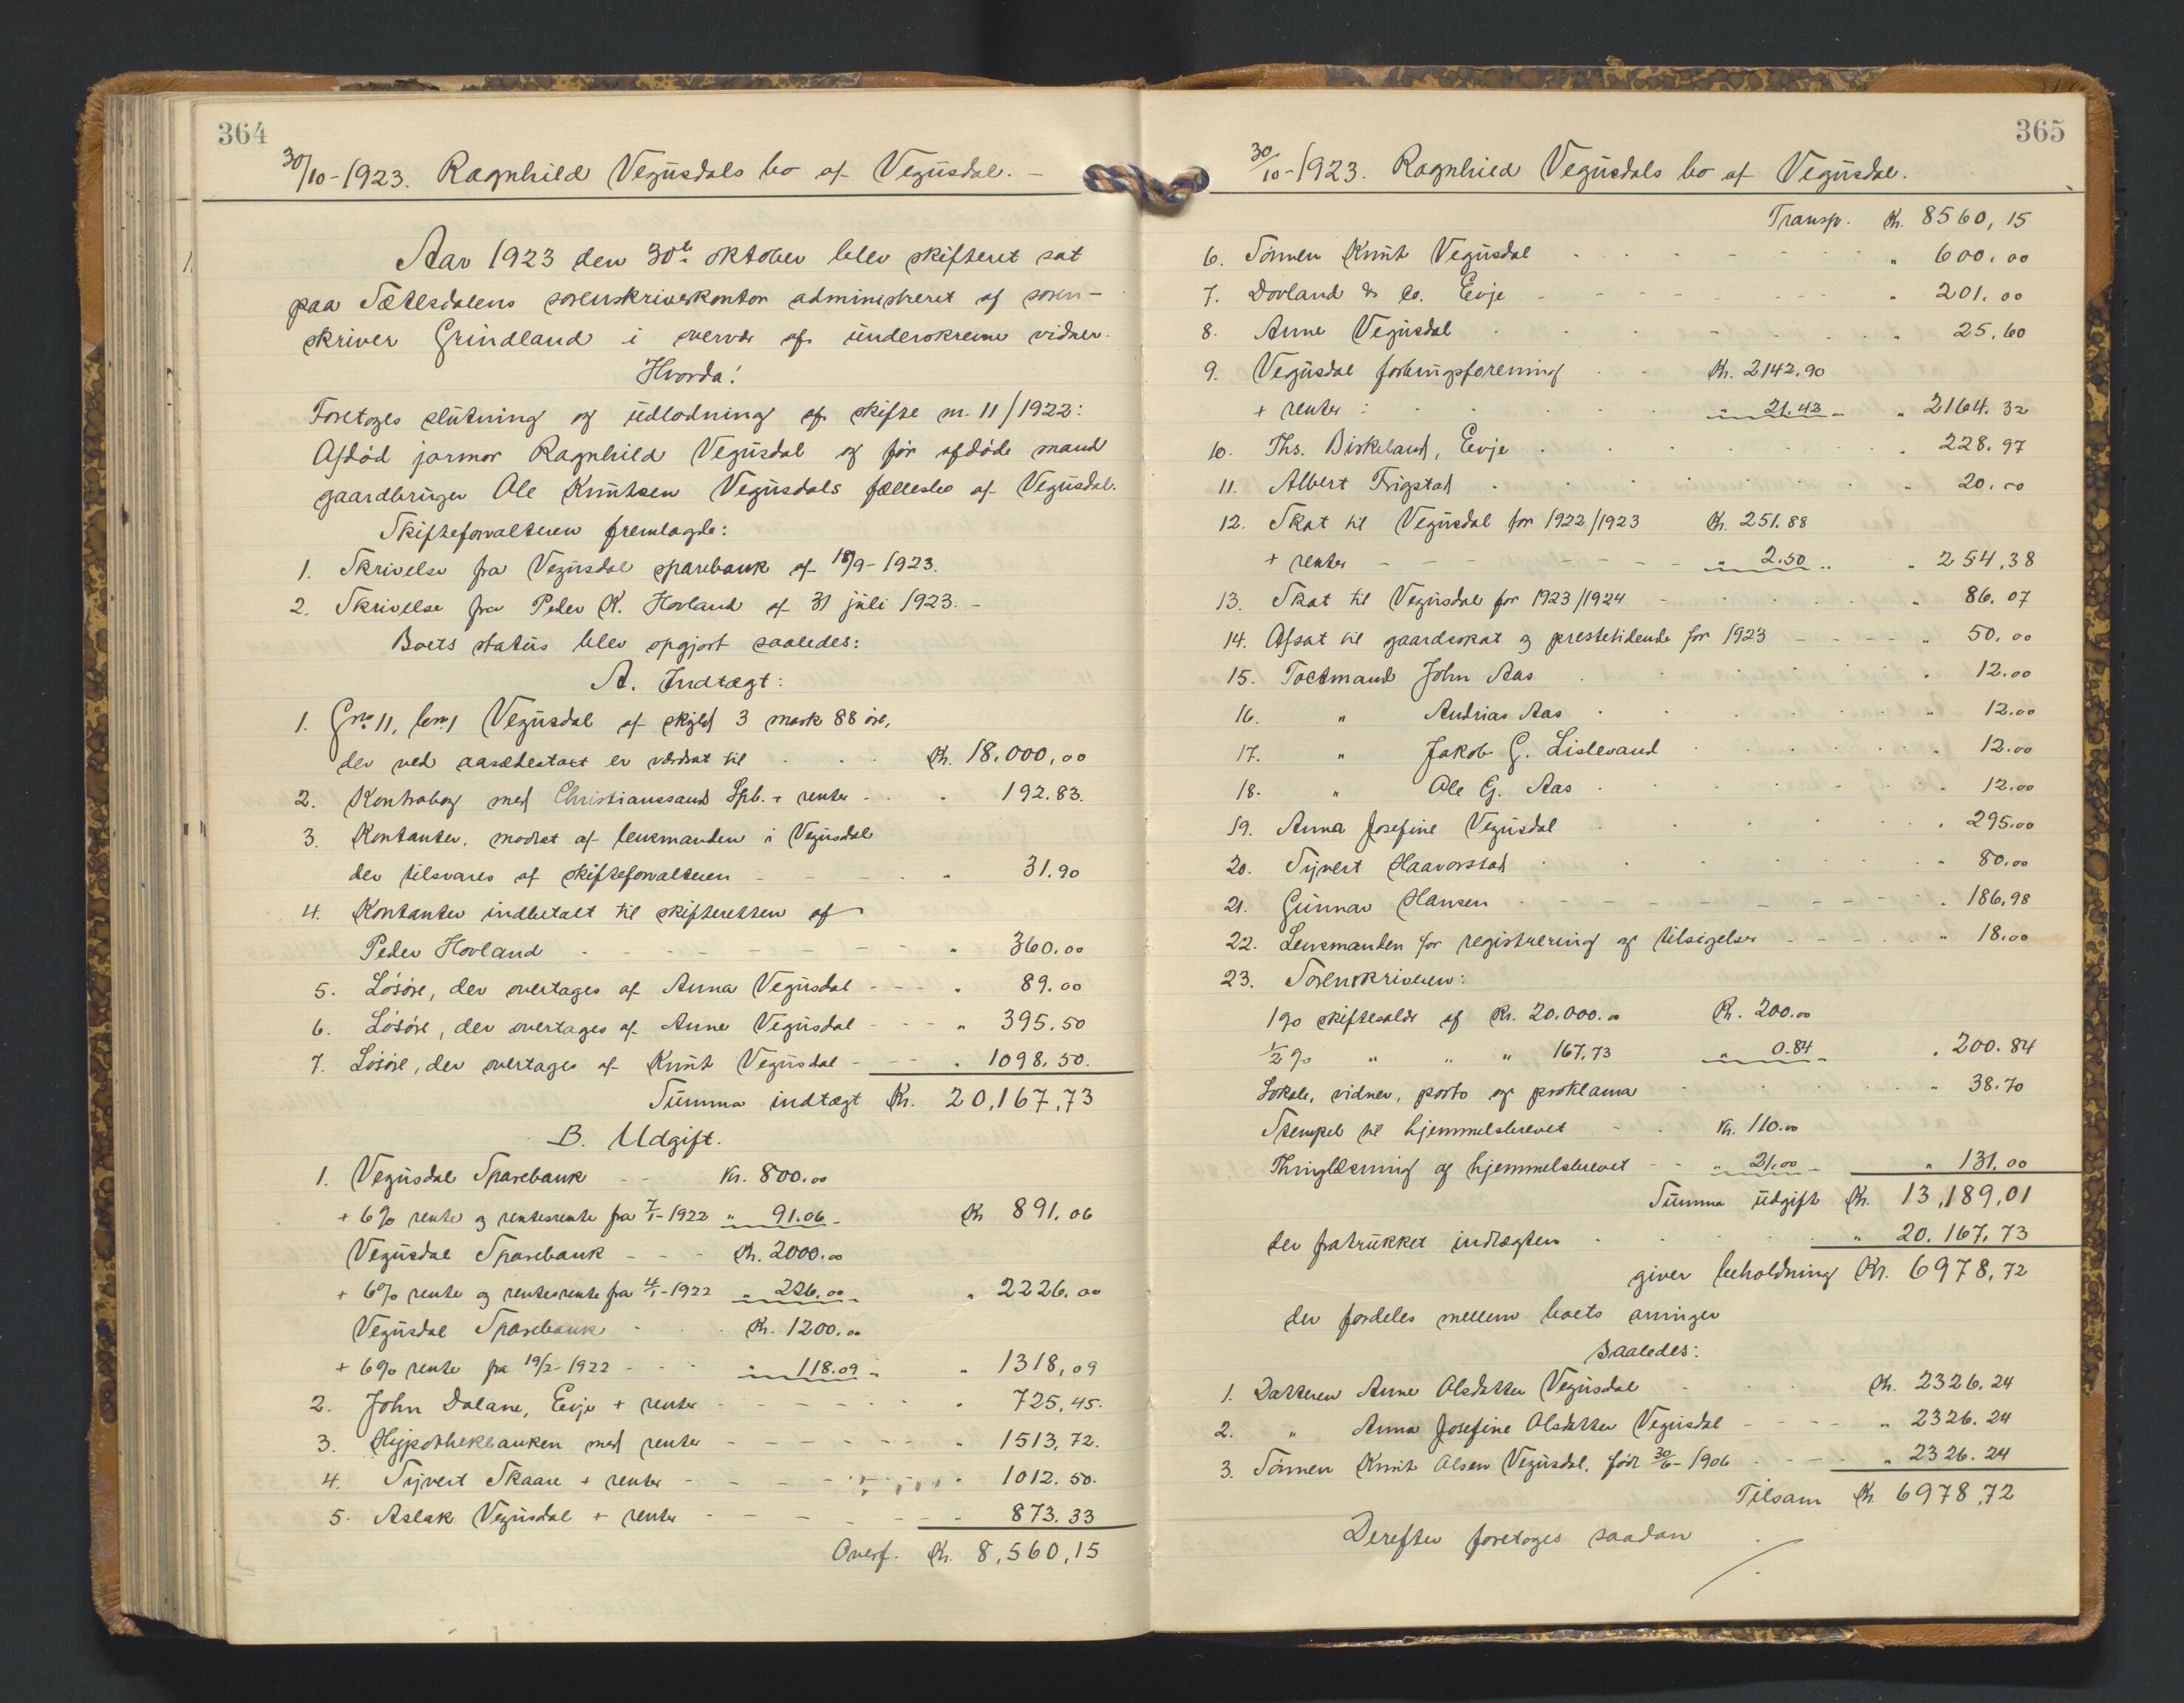 364
30/10-1923. Ragnhild Vegusdals bo af Vegusdal. –
1.
Aar 1923 den 30te oktober blev skifteret sat
paa Sætesdalens sorenskriverkontor administreret af soren-
skriver Grundland i overvær af underskrevne vidner.
Hvorda!
Foretoges slutning og udlodning af skifte nr. 11/1922:
Afdød jormor Ragnhild Vegusdal og før afdøde mand
gaardbruger Ole Knutsen Vegusdals fællesbo af Vegusdal.
Skifteforvalteren fremlagde:
1. Skrivelse fra Vegusdal sparebank af 18/9-1923.
2. Skrivelse fra Peder K. Hovland af 31 juli 1923. –
Boets status blev opgjort saaledes:
A. Indtægt:
1. Gno 11, bno 1 Vegusdal af skyld 3 mark 88 øre,
der ved aasædestakt er værdsat til . . . Kr. 18.000,00
2. Kontrabog med Christianssand Spb. + renter - . " 192.83.
3. Kontanter, modtat af lensmanden i Vegusdal
der tilsvares af skifteforvalteren - - - . " 31.90
4. Kontanter indbetalt til skifteretten af
Peder Hovland - - - - - " 360.00
5. Løsøre, der overtages af Anna Vegusdal - - - " 89.00
6. Løsøre, der overtages af Anne Vegusdal - - - " 395.50
7. Løsøre, der overtages af Knut Vegusdal - - - " 1098.50.
Summa indtægt Kr. 20,167,73
B. Udgift.
1. Vegusdal Sparebank - - Kr. 800.00
+ 6% rente og rentesrente fra 7/1-1922 " 91.06 - Kr 891,06
Vegusdal Sparebank - - - Kr. 2000.00
+ 6% rente og rentesrente fra 4/1-1922 " 226.00 - " 2226.00
Vegusdal Sparebank - . . Kr. 1200.00
+ 6% rente fra 19/2-1922 - - - " 118.09 - " 1318,09
2. John Dalane, Evje + renter - - - - - " 725,45.
3. Hypothekbanken med renter - - - - - " 1513,72.
4. Syvert Skaare + renter - - - - - " 1012.50.
5. Aslak Vegusdal + renter - - - - - " 873.33
Overf. Kr. 8,560,15
365
30/10-1923. Ragnhild Vegusdals bo af Vegusdal.
Transp. Kr. 8560,15
6. Sønnen Knut Vegusdal . . - - - - " 600.00
7. Dovland & Co. Evje - - - - - - " 201.00
8. Anne Vegusdal . . . . . " 25,60
9. Vegusdal forbrugsforening . - Kr. 2142.90
+ renter : . . . . " 21.42 - " 2164.32
10. Ths. Birkeland, Evje . . . . . " 228.97
11. Albert Frigstad . . . . . " 20.00
12. Skat til Vegusdal for 1922/1923 Kr. 251.88
+ renter - - - - - - " 2.50 .. " 254,38
13. Skat til Vegusdal for 1923/1924 - . . . " 86.07
14. Afsat til gaardskat og prestetidende for 1923 - - - - " 50,00
15. Taxtmand John Aas . . . . . " 12.00
16. " Andrias Aas . . . . . " 12.00
17. " Jakob G. Lislevand . . . . . " 12.00
18. " Ole G. Aas . . . . . " 12.00
19. Anna Josefine Vegusdal . . . . . " 295.00
20. Syvert Haavorstad . . . . . " 80.00
21. Gunnar Hansen - - - - - - - " 186,98
22. Lensmanden for registrering og tilsigelser - - - - - " 18.00
23. Sorenskriveren:
1% skiftesalær af Kr. 20.000.00 Kr. 200.00
½% " " " 167,73 " 0.84 - " 200.84
Lokale, vidner, porto og proklama . . . . " 38.70
Stempel til hjemmelsbrevet - . Kr. 110.00
Thinglæsning af hjemmelsbrevet - - " 21,00 - " 131.00
Summa udgift Kr. 13,189,01
der fratrukket indtægten . . . . " 20.167,73
giver beholdning Kr. 6978,72
der fordeles mellem boets arvinger
saaledes:
1. Datteren Anne Olsdatter Vegusdal . . . Kr. 2326.24
2. " Anna Josefine Olsdatter Vegusdal - - - - " 2326.24
3. Sønnen Knut Olsen Vegusdal, født 30/6-1906 - - - " 2326.24
Tilsam Kr 6978,72
Derefter foretoges saadan